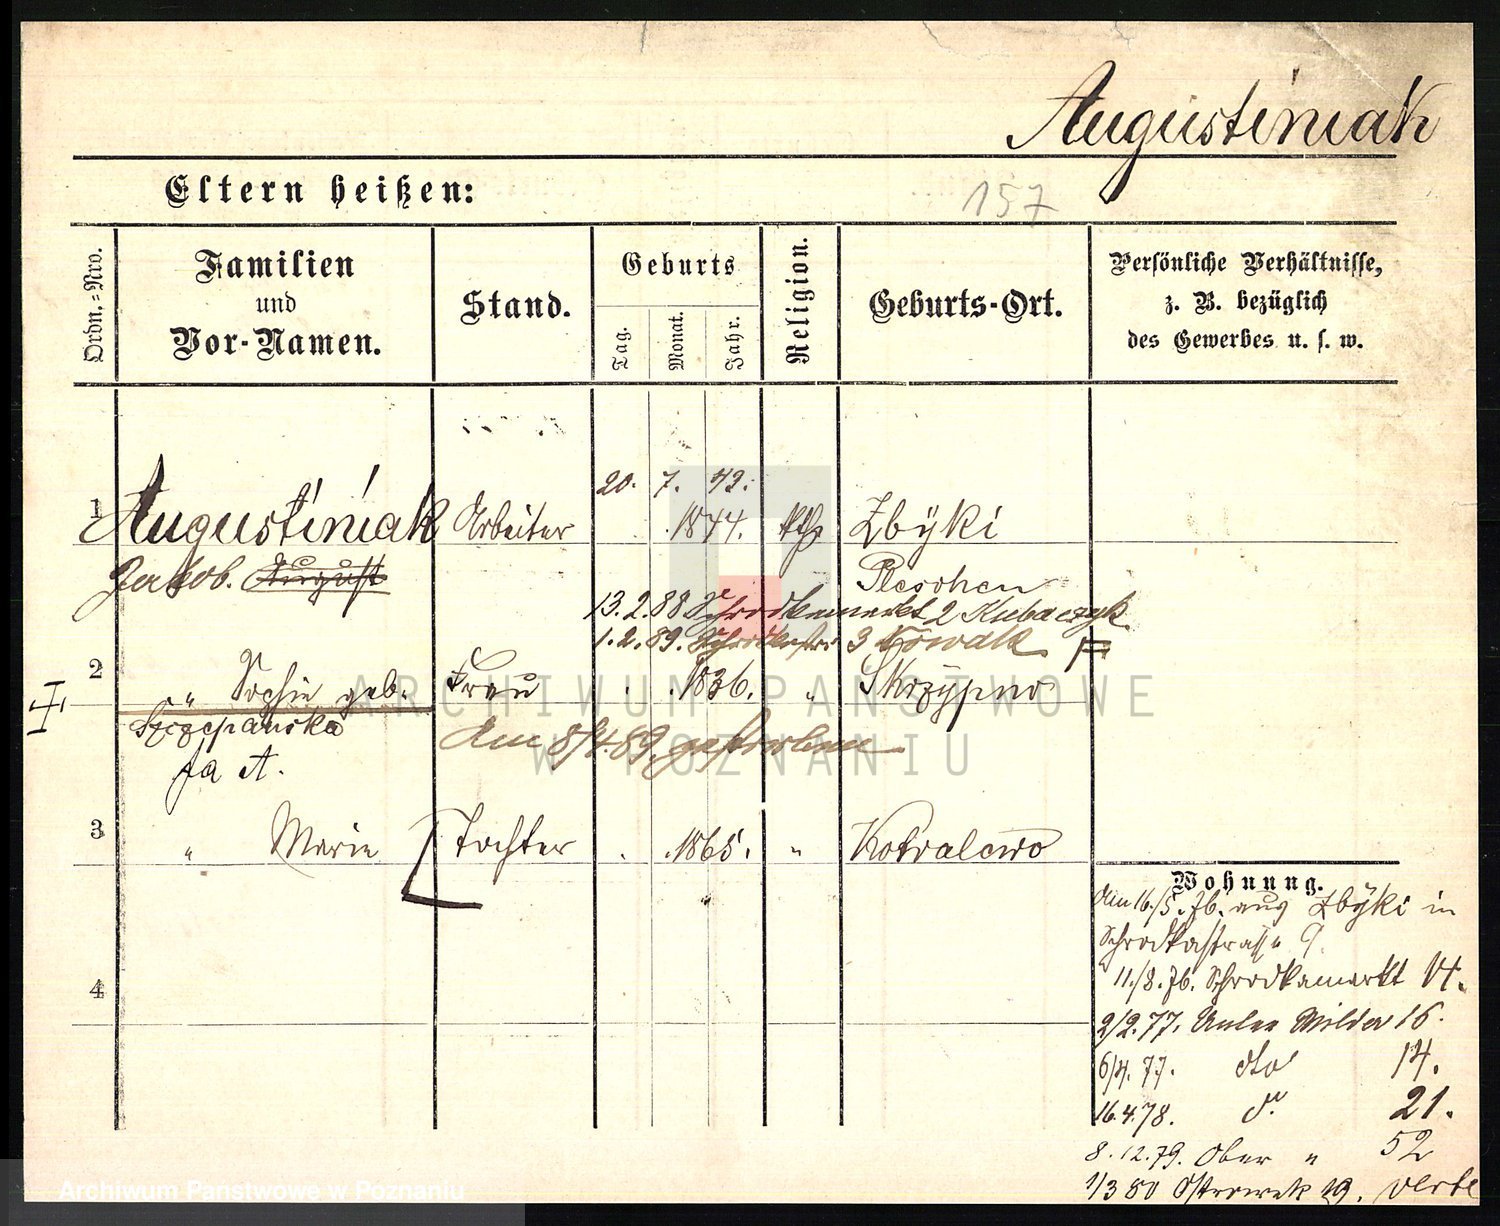 Augustiniak
Eltern heißen:
157
Ordn.=Nro.
Familien
und
Vor-Namen.
Stand.
Geburts
Tag.
Monat.
Jahr.
Religion.
Geburts-Ort.
Persönliche Verhältnisse,
z. B. bezüglich
des Gewerbes u. s. w.
20. 7. 42.
1 Augustiniak Arbeiter 1844. kth Zbÿki
Jakob. August Pleschen
13.2.88 Schrodkamarkt 2 Kubaczyk
1.2.89. Schrodkastr 3 Nowak
2 " Sophie geb. Frau 1836. " Skrzypno
Szczepanska
Am 8/4.89. gestorben
ja A.
3 " Marie Tochter 1865. " Kotvalewo
4
Wohnung.
Am 16./5. 76. aus Zbÿki in
Schrodkastrasse 9.
11./8. 76. Schrodkamarkt 14.
2/2. 77. Unter Wilda 16.
6/4. 77. dto 14.
16.4.78. do. 21.
8.12.79. Ober " 52
1/3 80 Ostrowek 19.
ARCHIWUM PAŃSTWOWE
W POZNANIU
Archiwum Państwowe w Poznaniu